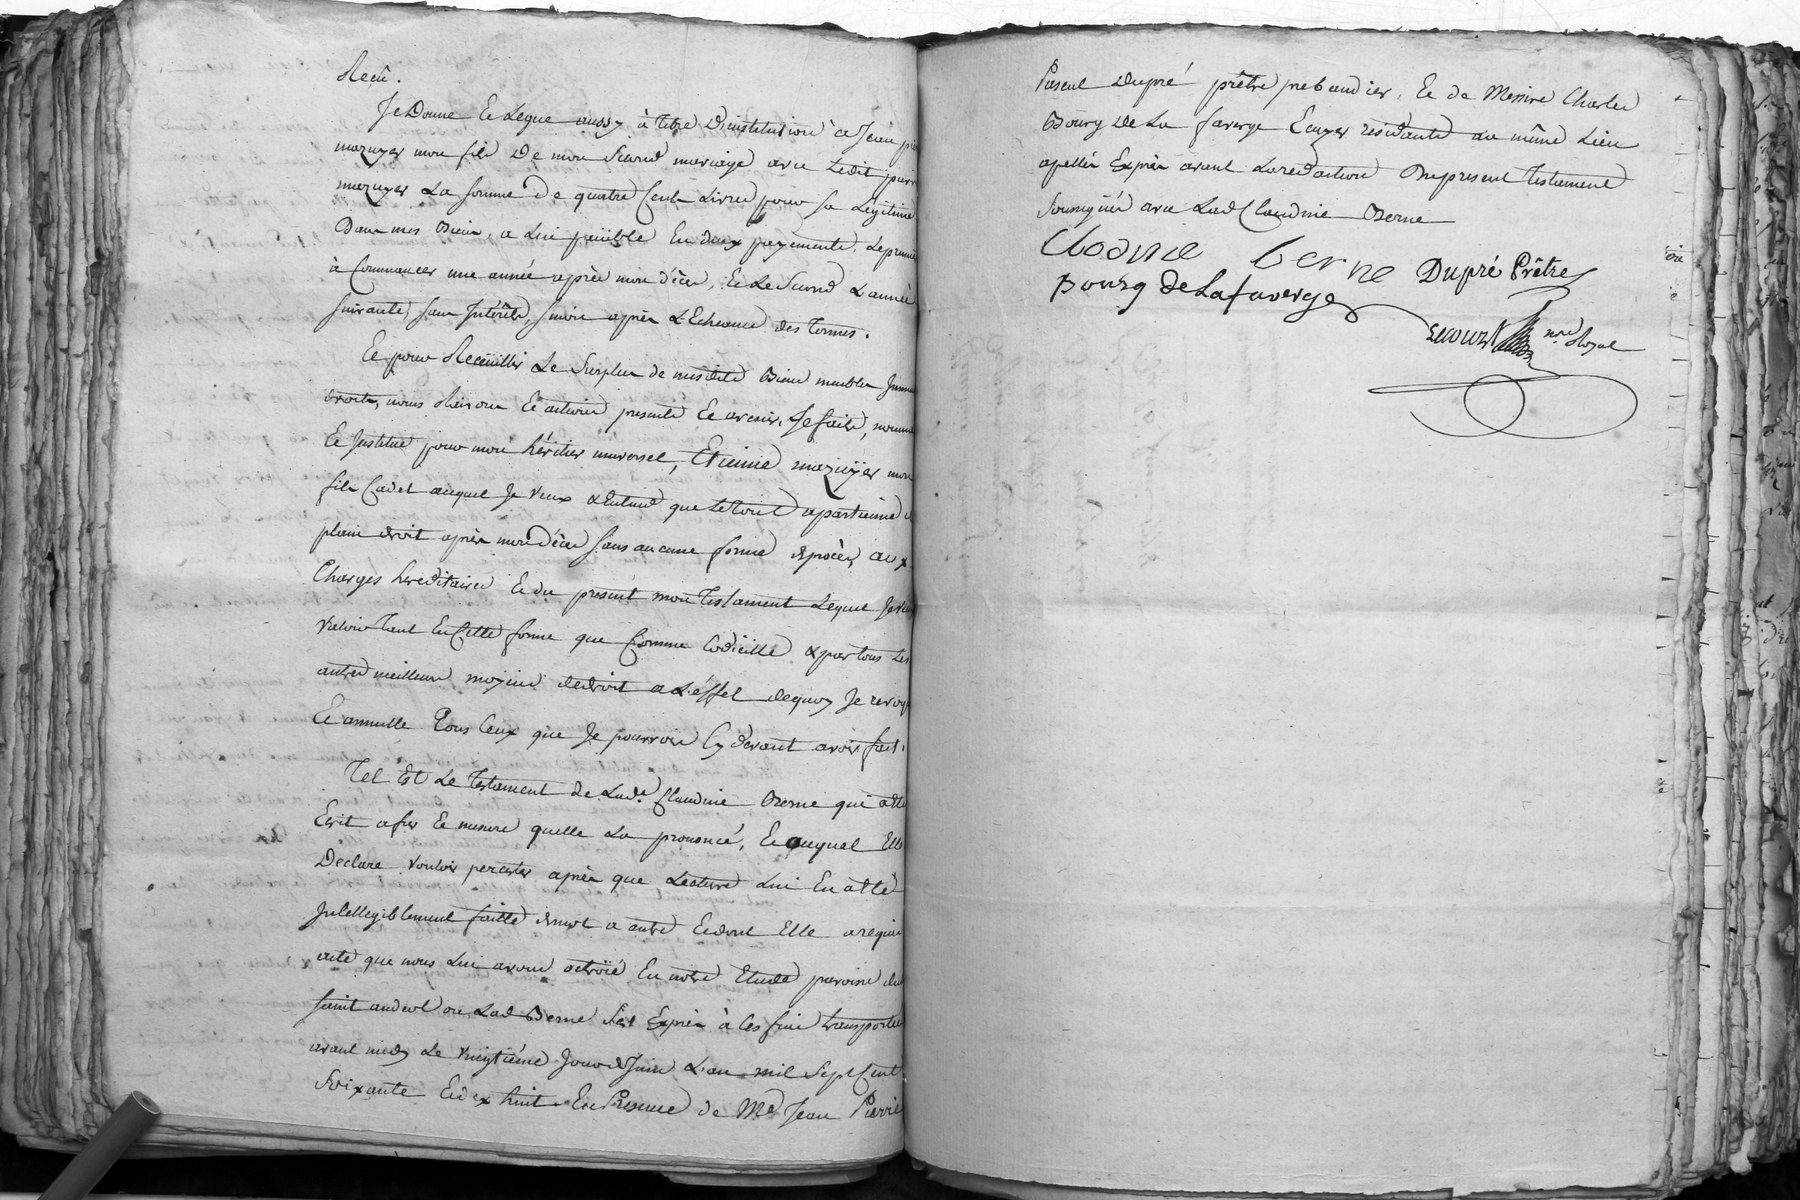 Recû.
Je Donne Et Legue aussy à titre D'institution a Jean pie
mazuyer mon fils De mon Second mariage avec Ledit pierr
mazuyer La somme De quatre Cent Livres pour sa Légitime
Dans mes Biens, a Lui païable En deux payements, Le premie
à Commancer une année après mon décès, Et Le Second L'année
suivante, sans Intérêts, sinon après L'Echeance des termes.
Et pour Recëuillir Le Surplus de mesdits Biens meubles Immeu
droits, noms Raisons Et actions presents Et avenir, Je fais, nomme
Et Institue pour mon héritier universel, Etienne mazuÿer mon
fils Cadet auquel Je veux & Entend que Le tout apartienne d
plain droit après mon Décès sans aucune forme deprocès, aux
Charges héréditaires Et du présent mon Testament Lequel Je veu
valoir Tant En Cette forme que Comme Codicille & par tous Les
autres meilleurs moyens dedroit a L'éffet dequoy Je revoq
Et annulle Tous Ceux que Je pourrois Cy devant avoir fait.
Tel Est Le Testament de Lad.e Claudine Berne qui a été
Ecrit a fur Et mesure quelle La prononcé, Et auquel Elle
Déclare vouloir percister après que Lecture Lui En a été
Intelligiblement faitte demot a autre Et dont Elle a requis
acte que nous Lui avons octroïé En notre Etude paroisse du
saint andeol ou Lad Berne s'est Exprès à Ces fins transportée
avant midy Le vingtiéme Jour de Juin L'an mil Sept Cent
Soixante Et dix huit. En Presence de Me Jean Pierre
Pascal Dupré prêtre prebandier, Et de Messire Charles
Bourg De La faverge Ecuyer résidants au même Lieu
apellés Exprès avant La rédaction Du present Testament
Soussignés avec Lad Claudine Berne
Clodnie Berne Dupré Prêtre
Bourg De Lafaverge
nre Royal